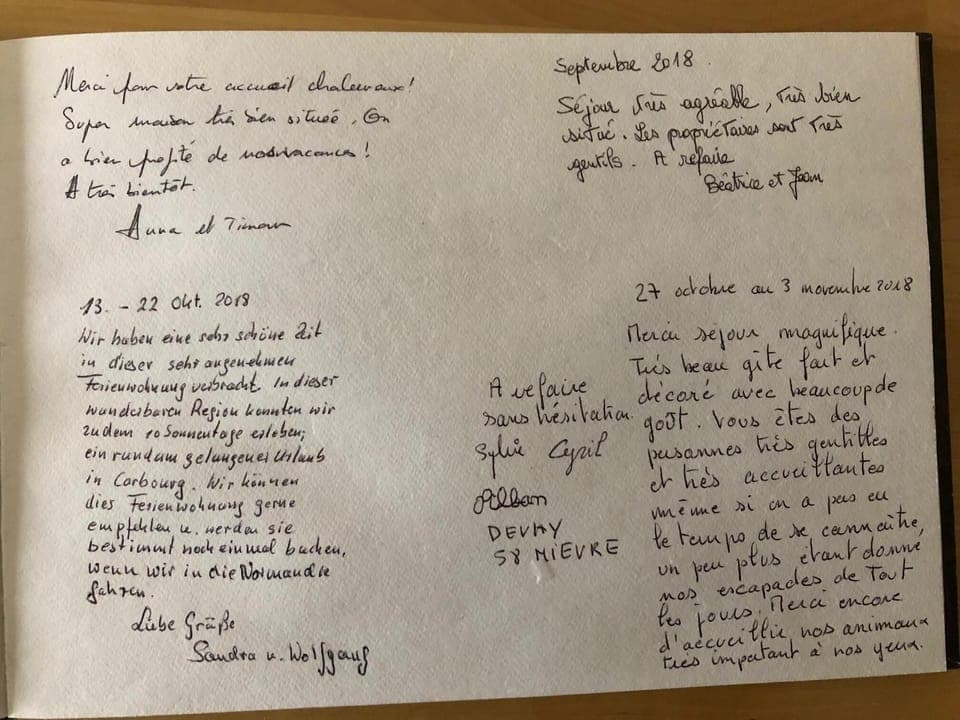 Merci pour votre accueil chaleureux!
Super maison très bien située. On
a bien profité de nos vacances!
A très bientôt.
Anna et
Septembre 2018.
Séjour très agréable, très bien
situé. Les propriétaires sont très
gentils. A refaire
Béatrice et Jean
13. - 22 Okt. 2018
Wir haben eine sehr schöne Zeit
in dieser sehr angenehmen
Ferienwohnung verbracht. In dieser
wunderbaren Region konnten wir
zudem 10 Sonnentage erleben;
ein rundum gelungener Urlaub
in Cabourg. Wir können
dies Ferienwohnung gerne
empfehlen u. werden sie
bestimmt noch einmal buchen,
wenn wir in die Normandie
fahren.
Liebe Grüße
Sandra u. Wolfgang
27 octobre au 3 novembre 2018
Merci séjour magnifique.
Très beau gîte fait et
décoré avec beaucoup de
goût. Vous êtes des
personnes très gentilles
et très accueillantes
même si on a pas eu
le temps de se connaître,
un peu plus étant donné
nos escapades de tout
les jours. Merci encore
d'accueillir nos animaux
très important à nos yeux.
A refaire
sans hésitation.
Sylvie Cyril
DEVAY
58 NIEVRE